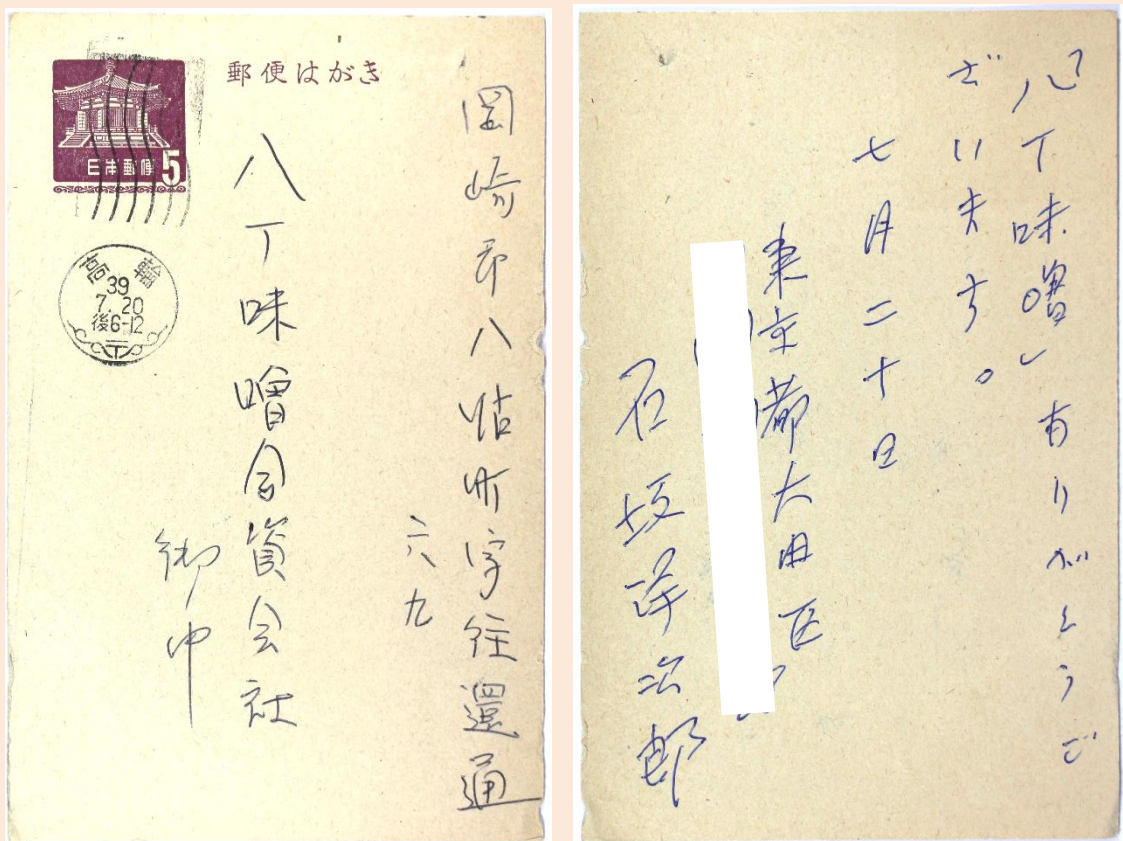 郵便はがき
日本郵便 5
高輪
39
7.20
後6-12
岡崎市八帖町字往還通
六九
八丁味噌合資会社
御中
「八丁味噌」有りがとうご
ざいます。
七月二十日
東京都大田区
石坂洋次郎